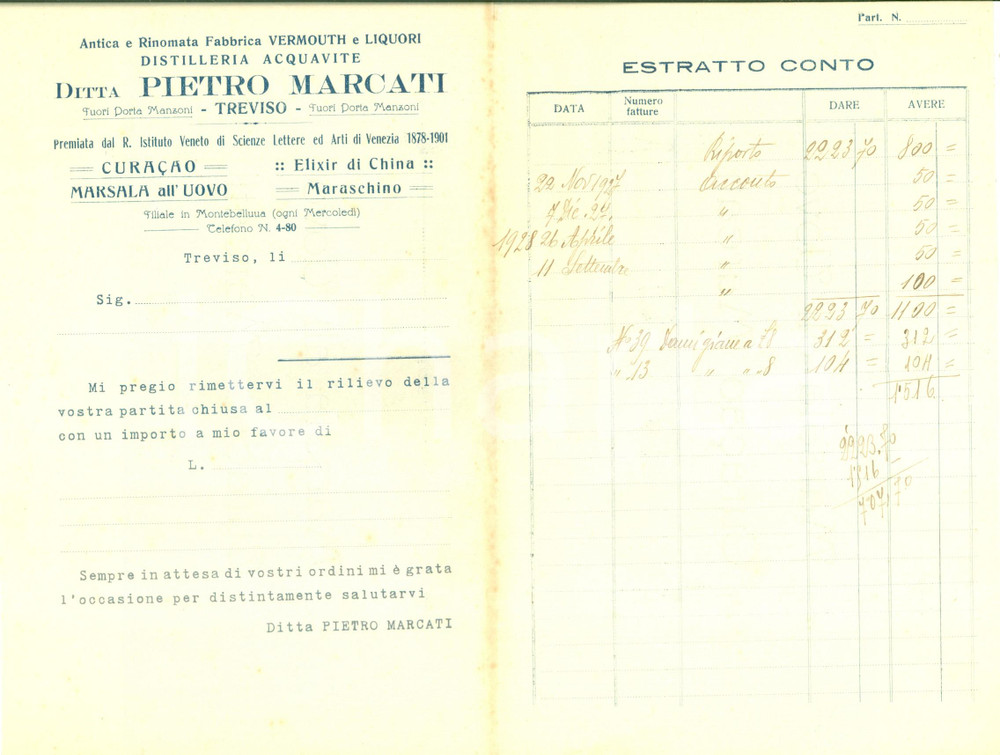 Antica e Rinomata Fabbrica VERMOUTH e LIQUORI
DISTILLERIA ACQUAVITE
DITTA PIETRO MARCATI
Fuori Porta Manzoni - TREVISO - Fuori Porta Manzoni
Premiata dal R. Istituto Veneto di Scienze Lettere ed Arti di Venezia 1878-1901
CURAÇAO :: Elixir di China ::
MARSALA all' UOVO Maraschino
Filiale in Montebelluna (ogni Mercoledì)
Telefono N. 4-80
Treviso, li
Sig.
Mi pregio rimettervi il rilievo della
vostra partita chiusa al
con un importo a mio favore di
L.
Sempre in attesa di vostri ordini mi è grata
l'occasione per distintamente salutarvi
Ditta PIETRO MARCATI
Part. N.
ESTRATTO CONTO
DATA Numero fatture DARE AVERE
Riporto 2223 70 800 =
22 Nov 1927 acconto 50 =
7 Dic. 27. " 50 =
1928 26 Aprile " 50 =
11 Settembre " 50 =
" 100 =
2223 70 1100 =
No 39 Damigiane a 312 = 312 =
" 13 " " 8 104 = 104 =
1516
2223.70
1516
707.70